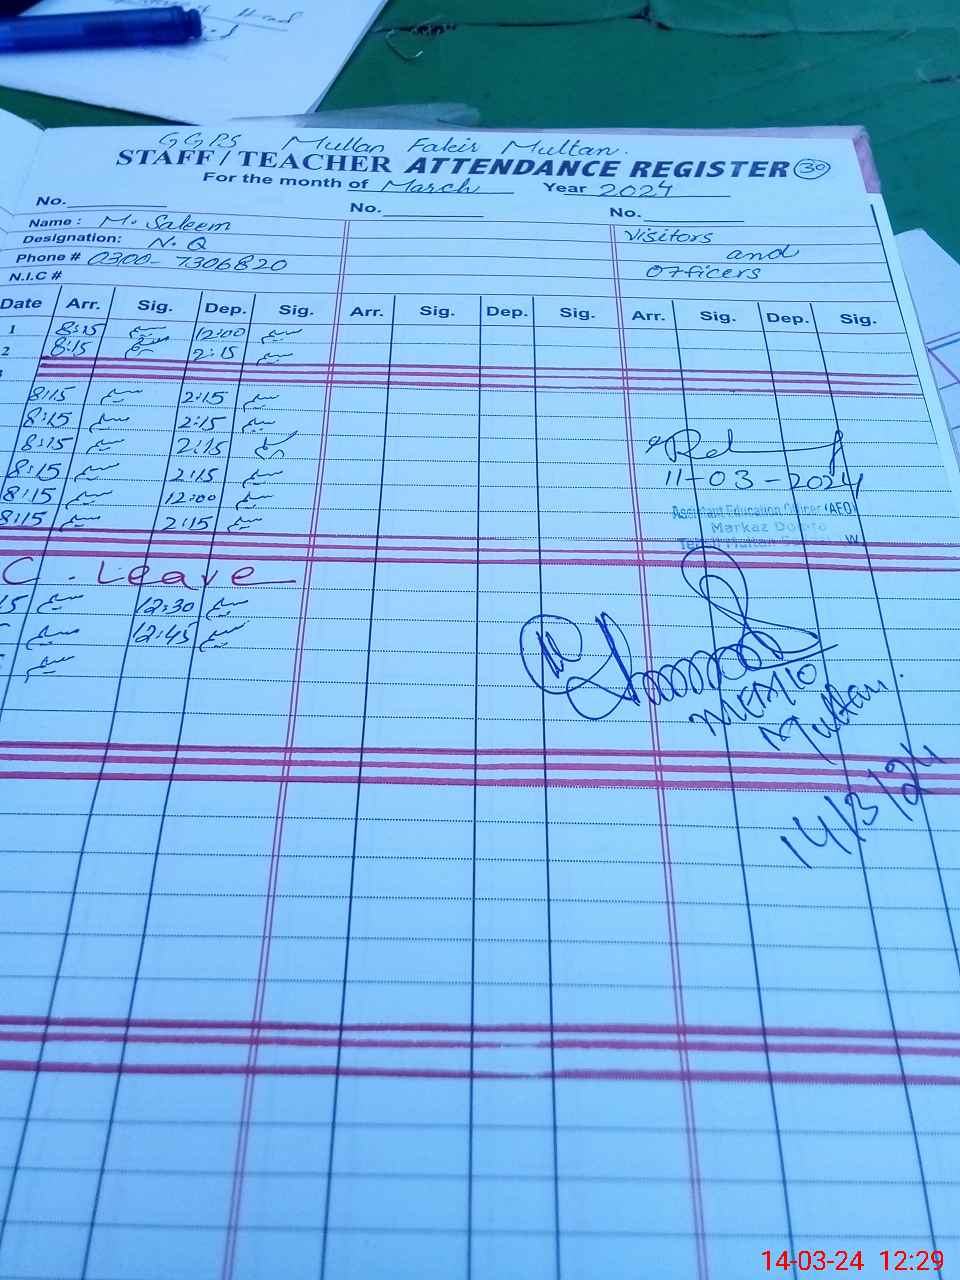 GGPS Mullan Fakir Multan.
STAFF / TEACHER ATTENDANCE REGISTER 30
For the month of March Year 2024
No. No. No.
Name : M. Saleem Visitors
Designation: N.Q and
Phone # 0300-7306820 Officers
N.I.C #
Date Arr. Sig. Dep. Sig. Arr. Sig. Dep. Sig. Arr. Sig. Dep. Sig.
1 8:15 سلیم 12:00 سلیم
2 8:15 سلیم 2:15 سلیم
8:15 سلیم 2:15 سلیم
8:15 سلیم 2:15 سلیم
8:15 سلیم 2:15 سلیم
8:15 سلیم 2:15 سلیم
11-03-2024
8:15 سلیم 12:00 سلیم
8:15 سلیم 2:15 سلیم
Assistant Education Officer (AEO)
Markaz
Tehsil Multan W
C. Leave
15 سلیم 12:30 سلیم
سلیم 12:45 سلیم
سلیم
Multan.
14/3/24
14-03-24 12:29